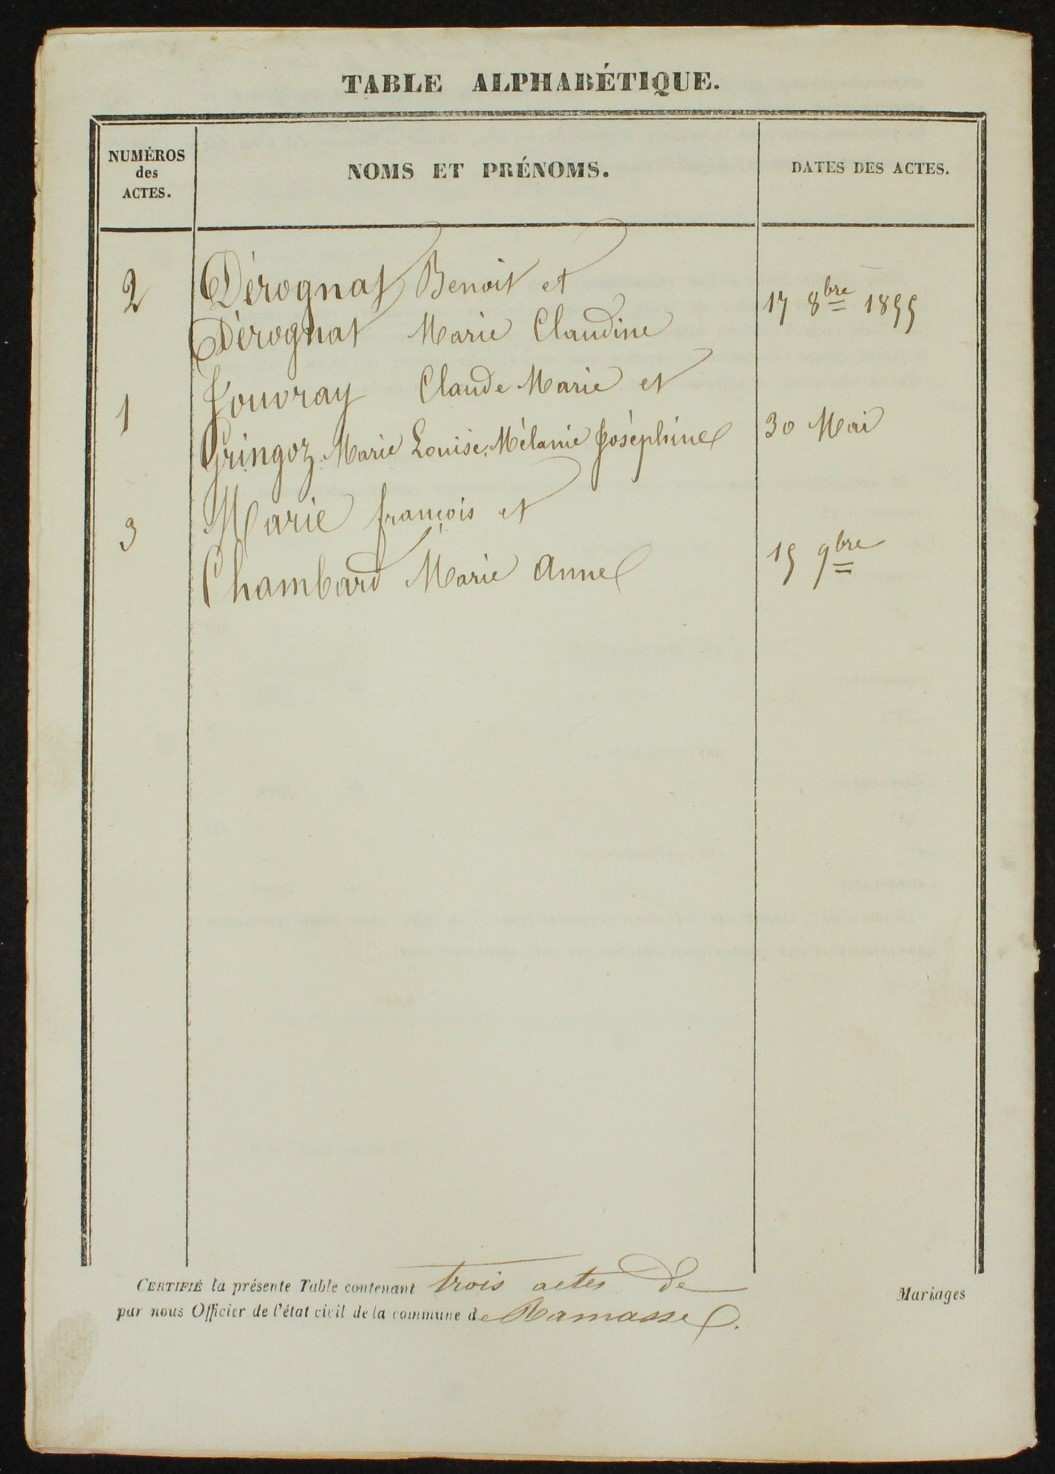 TABLE ALPHABÉTIQUE.
NUMÉROS
des
ACTES.
NOMS ET PRÉNOMS.
DATES DES ACTES.
2 Dérognat Benoit et
Dérognat Marie Claudine
17 8bre 1855
1 Jouvray Claude Marie et
Gringoz Marie Louise Mélanie Joséphine
30 Mai
3 Marie françois et
Chambard Marie Anne
15 9bre
CERTIFIÉ la présente Table contenant trois actes de Mariages
par nous Officier de l'état civil de la commune de Ramasse.